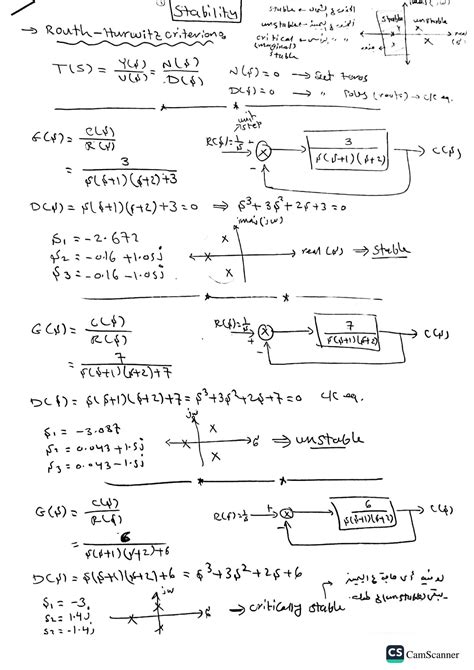 Stability
stable
unstable
critical
(marginal)
stable
stable unstable
→ Routh-Hurwitz criterions
T(s) = Y(s)/U(s) = N(s)/D(s)
N(s) = 0 → Get zeros
D(s) = 0 → " Poles (roots) → c/c eq.
G(s) = C(s)/R(s)
= 3/(s(s+1)(s+2)+3)
unit
step
R(s)=1/s
3/(s(s+1)(s+2))
C(s)
D(s) = s(s+1)(s+2)+3=0 ⇒ s³+3s²+2s+3=0
s1 = -2.672
s2 = -0.16 +1.05j
s3 = -0.16 -1.05j
imag(jω)
real (σ) ⇒ stable
G(s) = C(s)/R(s)
= 7/(s(s+1)(s+2)+7)
R(s)=1/s
7/(s(s+1)(s+2))
C(s)
D(s) = s(s+1)(s+2)+7 = s³+3s²+2s+7=0 c/c eq.
s1 = -3.087
s2 = 0.043 +1.5j
s3 = 0.043 -1.5j
jω
σ ⇒ unstable
G(s) = C(s)/R(s)
= 6/(s(s+1)(s+2)+6)
R(s)=1/s
6/(s(s+1)(s+2))
C(s)
D(s) = s(s+1)(s+2)+6 = s³+3s²+2s+6
s1 = -3
s2 = 1.4j
s2 = -1.4j
jω
σ → critically stable
(unstable)
CS CamScanner